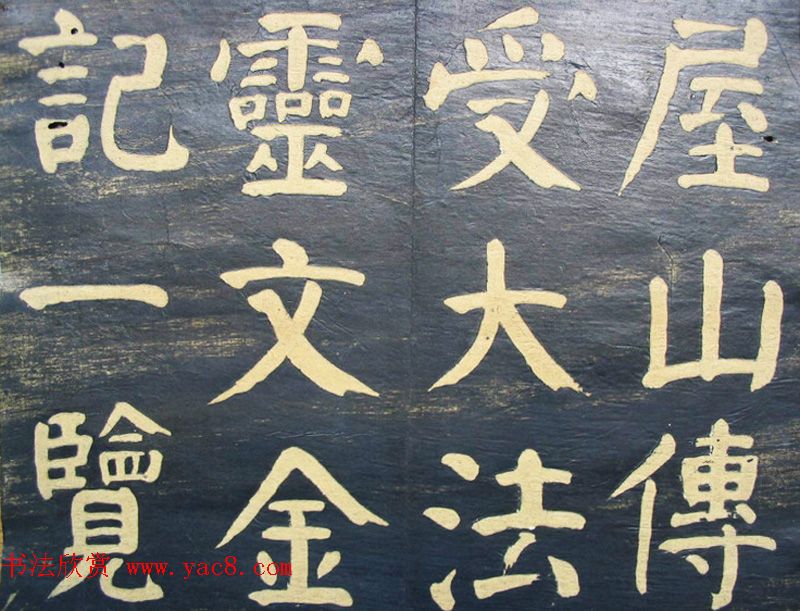 屋山傳
受大法
靈文金
記一覽
书法欣赏 www.yac8.com